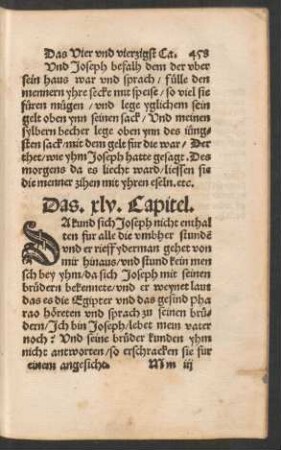 Das Vier vnd vierzigst Ca. 458
Vnd Joseph befalh dem der vber
sein haus war vnd sprach/ fülle den
mennern yhre secke mit speise/ so viel sie
füren mügen/ vnd lege yglichem sein
gelt oben ynn seinen sack/ Vnd meinen
sylbern becher lege oben ynn des iüng-
sten sack/ mit dem gelt für die war/ Der
thet/ wie yhm Joseph hatte gesagt. Des
morgens da es liecht ward/ liessen sie
die menner zihen mit yhren eseln. etc.
Das. xlv. Capitel.
DA kund sich Joseph nicht enthal
ten für alle die vmbher stundē
vnd er rieff yderman gehet von
mir hinaus/ vnd stund kein men
sch bey yhm/ da sich Joseph mit seinen
brüdern bekennete/ vnd er weynet laut
das es die Egipter vnd das gesind pha
rao höreten vnd sprach zu seinen brü-
dern/ Ich bin Joseph/ lebet mein vater
noch? Vnd seine brüder kunden yhm
nicht antworten/ so erschracken sie für
einem angesicht. Mm iij